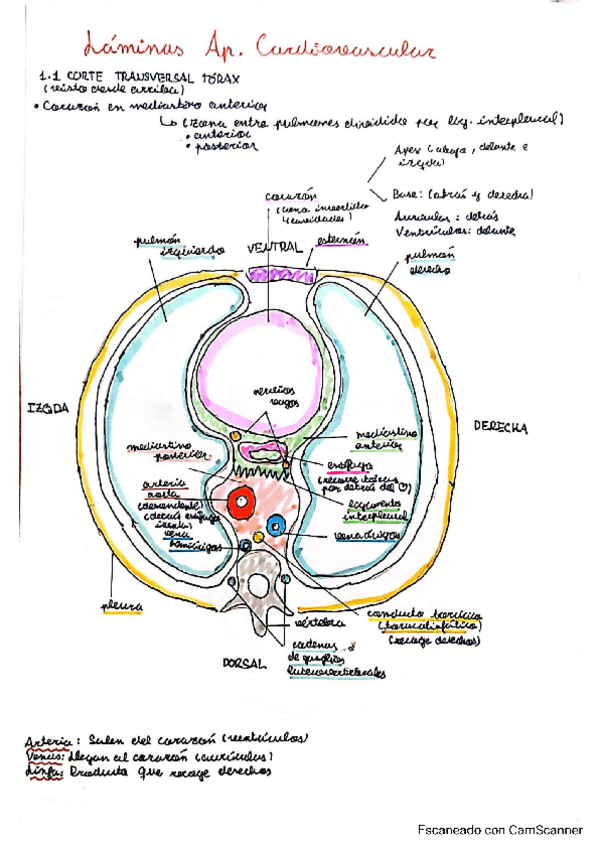 Láminas Ap. Cardiovascular
1.1 CORTE TRANSVERSAL TÓRAX
(visto desde arriba)
• Corazón en mediastino anterior
↳ (zona entre pulmones dividida por lig. interpleural)
• anterior
• posterior
Apex (abajo, delante e
izqda)
Base: (atrás y derecha)
Aurículas: detrás
Ventrículos: delante
corazón
(zona invertida
4 cavidades)
VENTRAL
esternón
pulmón
izquierdo
pulmón
derecho
IZQDA
DERECHA
nervios
vagos
mediastino
anterior
mediastino
posterior
esófago
(recorre tórax
por detrás del ♡)
arteria
aorta
(descendente)
(detrás esófago
izqda)
ligamento
interpleural
vena
hemiácigos
vena ácigos
pleura
conducto torácico
(recoge desechos)
vértebra
cadenas
de ganglios
laterovertebrales
DORSAL
Arteria: Salen del corazón (ventrículos)
Venas: Llegan al corazón (aurículas)
Linfa: Producto que recoge desechos
Escaneado con CamScanner